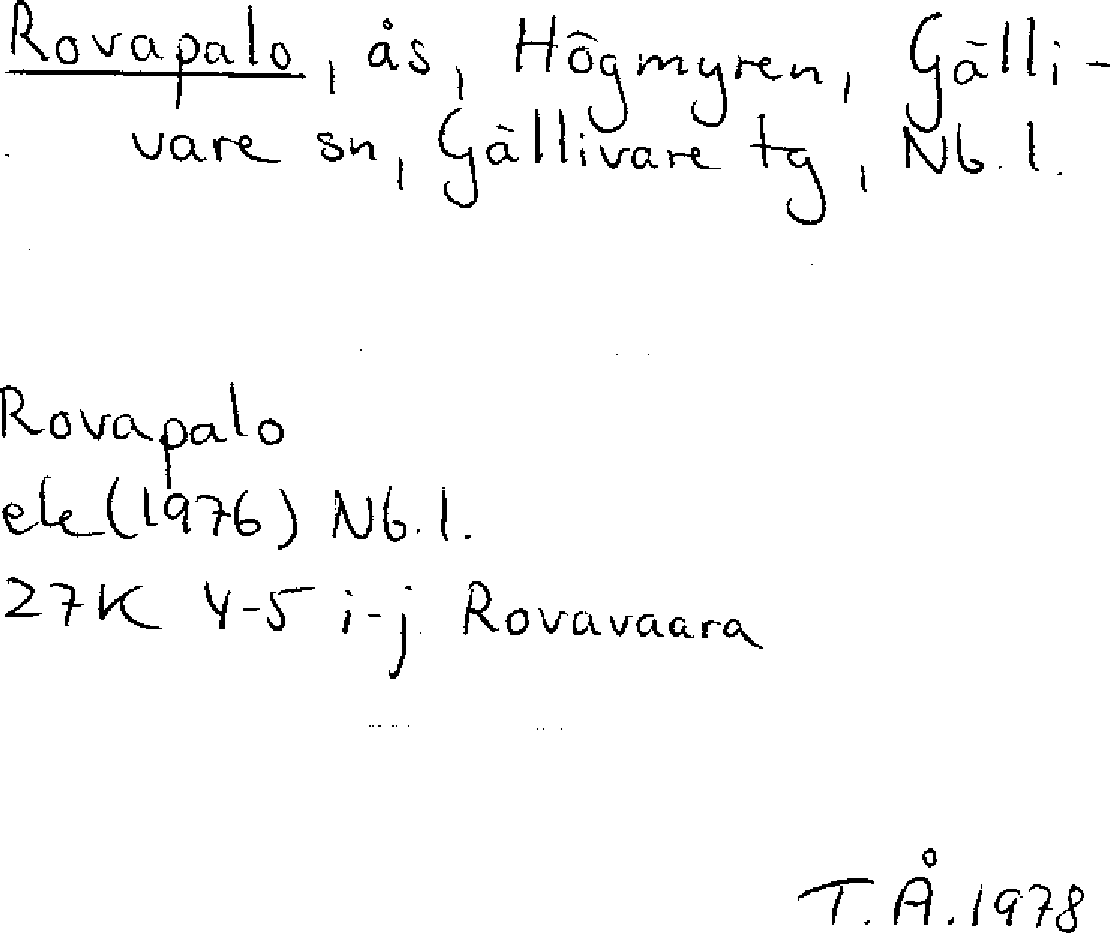 Rovapalo, ås, Högmyren, Gälli-
vare sn, Gällivare tg, Nb. l.
Rovapalo
ek (1976) Nb. l.
27K 4-5 i-j Rovavaara
T. Å. 1978